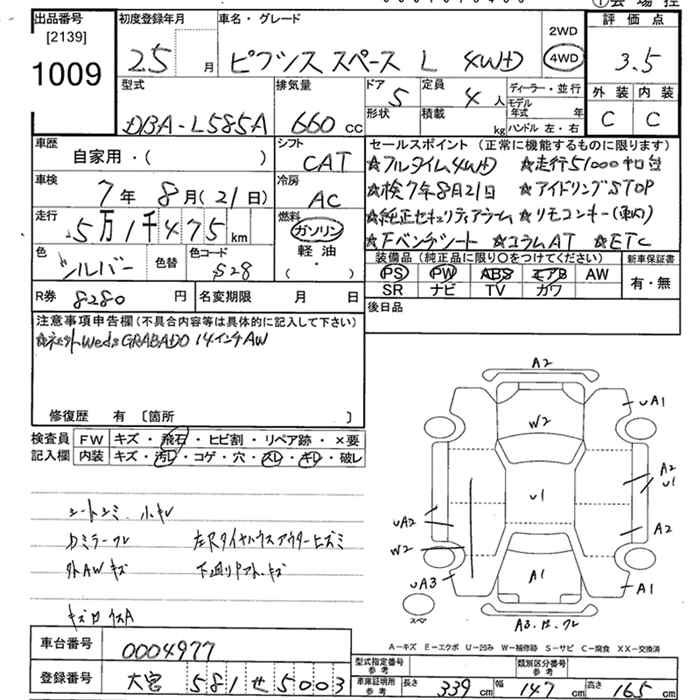 ①会場控
出品番号
[2139]
1009
初度登録年月
25 月
車名・グレード
ピクシス スペース L 4WD
2WD
4WD
評価点
3.5
外装 内装
C C
型式
DBA-L585A
排気量
660 cc
ドア
5
形状
定員
4 人
積載
kg
ディーラー・並行
モデル年式 年
ハンドル 左・右
車歴
自家用・( )
シフト
CAT
車検
7年 8月(21日)
冷房
AC
走行
5万1千475km
燃料
ガソリン
軽油
・( )
色
シルバー
色替
色コード
S28
R券 8280 円
名変期限 月 日
セールスポイント (正常に機能するものに限ります)
☆フルタイム4WD ☆走行51000キロ台
☆検7年8月21日 ☆アイドリングSTOP
☆純正セキュリティアラーム ☆リモコンキー
☆Fベンチシート ☆コラムAT ☆ETC
装備品 (純正品に限り○をつけてください)
PS PW ABS エアB AW
SR ナビ TV カワ
新車保証書
有・無
後日品
注意事項申告欄 (不具合内容等は具体的に記入して下さい)
☆ネットWeds GRABADO 14インチAW
修復歴 有 〔箇所 〕
検査員記入欄
FW キズ・飛石・ヒビ割・リペア跡・×要
内装 キズ・汚レ・コゲ・穴・スレ・キレ・破レ
シートシミ 小キレ
外AWキズ
A2
W2
U1
A1
UA1
A2
U1
A2
A1
UA2
W2
UA3
スペア
A-キズ E-エクボ U-凹み W-補修跡 S-サビ C-腐食 XX-交換済
車台番号 0004977
登録番号 大宮 581 せ 5003
型式指定番号 参考
類別区分番号 参考
車庫証明用 参考 長さ 339cm 幅 147cm 高さ 165cm